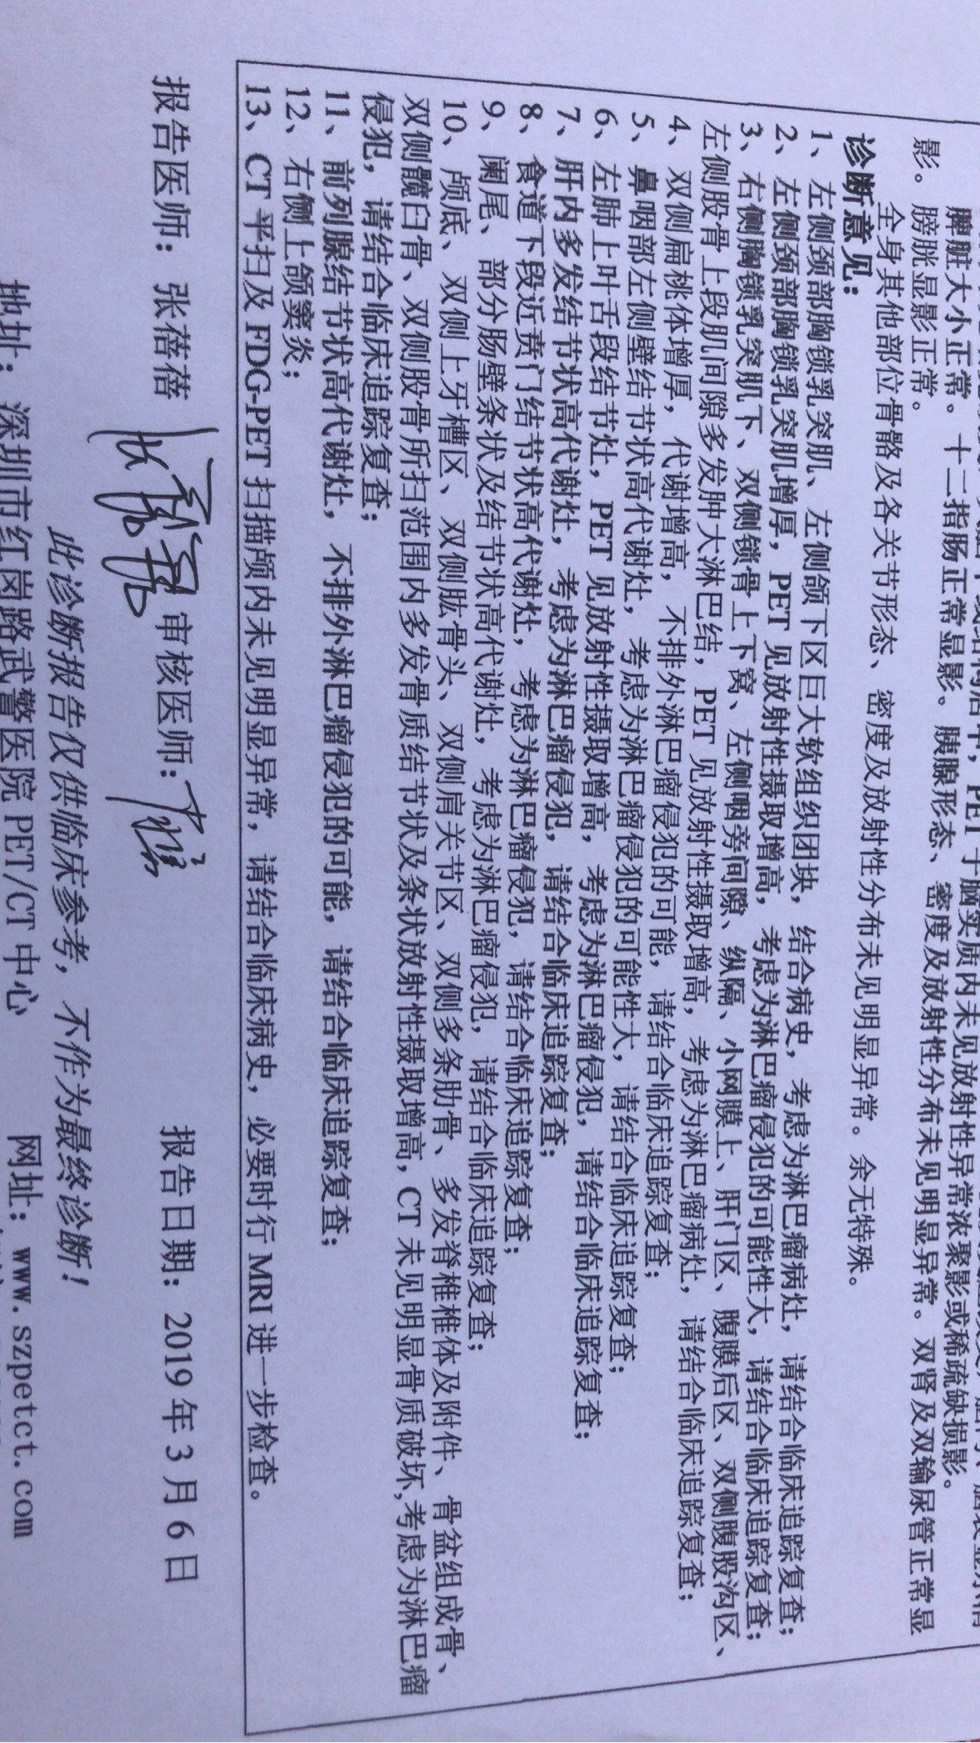 脾脏大小正常。十二指肠正常显影。胰腺形态、密度及放射性分布未见明显异常。双肾及双输尿管正常显
影。膀胱显影正常。
全身其他部位骨骼及各关节形态、密度及放射性分布未见明显异常。余无特殊。
诊断意见：
1、左侧颈部胸锁乳突肌、左侧颌下区巨大软组织团块，结合病史，考虑为淋巴瘤病灶，请结合临床追踪复查；
2、左侧颈部胸锁乳突肌增厚，PET 见放射性摄取增高，考虑为淋巴瘤侵犯的可能性大，请结合临床追踪复查；
3、右侧胸锁乳突肌下、双侧锁骨上下窝、左侧咽旁间隙、纵隔、小网膜上、肝门区、腹膜后区、双侧腹股沟区、
左侧股骨上段肌间隙多发肿大淋巴结，PET 见放射性摄取增高，考虑为淋巴瘤病灶，请结合临床追踪复查；
4、双侧扁桃体增厚，代谢增高，不排外淋巴瘤侵犯的可能，请结合临床追踪复查；
5、鼻咽部左侧壁结节状高代谢灶，考虑为淋巴瘤侵犯的可能性大，请结合临床追踪复查；
6、左肺上叶舌段结节灶，PET 见放射性摄取增高，考虑为淋巴瘤侵犯，请结合临床追踪复查；
7、肝内多发结节状高代谢灶，考虑为淋巴瘤侵犯，请结合临床追踪复查；
8、食道下段近贲门结节状高代谢灶，考虑为淋巴瘤侵犯，请结合临床追踪复查；
9、阑尾、部分肠壁条状及结节状高代谢灶，考虑为淋巴瘤侵犯，请结合临床追踪复查；
10、颅底、双侧上牙槽区、双侧肱骨头、双侧肩关节区、双侧多条肋骨、多发脊椎椎体及附件、骨盆组成骨、
双侧髋臼骨、双侧股骨所扫范围内多发骨质结节状及条状放射性摄取增高，CT 未见明显骨质破坏，考虑为淋巴瘤
侵犯，请结合临床追踪复查；
11、前列腺结节状高代谢灶，不排外淋巴瘤侵犯的可能，请结合临床追踪复查；
12、右侧上颌窦炎；
13、CT 平扫及 FDG-PET 扫描颅内未见明显异常，请结合临床病史，必要时行 MRI 进一步检查。
报告医师：张蓓蓓 审核医师： 报告日期：2019 年 3 月 6 日
此诊断报告仅供临床参考，不作为最终诊断！
地址：深圳市红岗路武警医院 PET/CT 中心 网址：www.szpetct.com